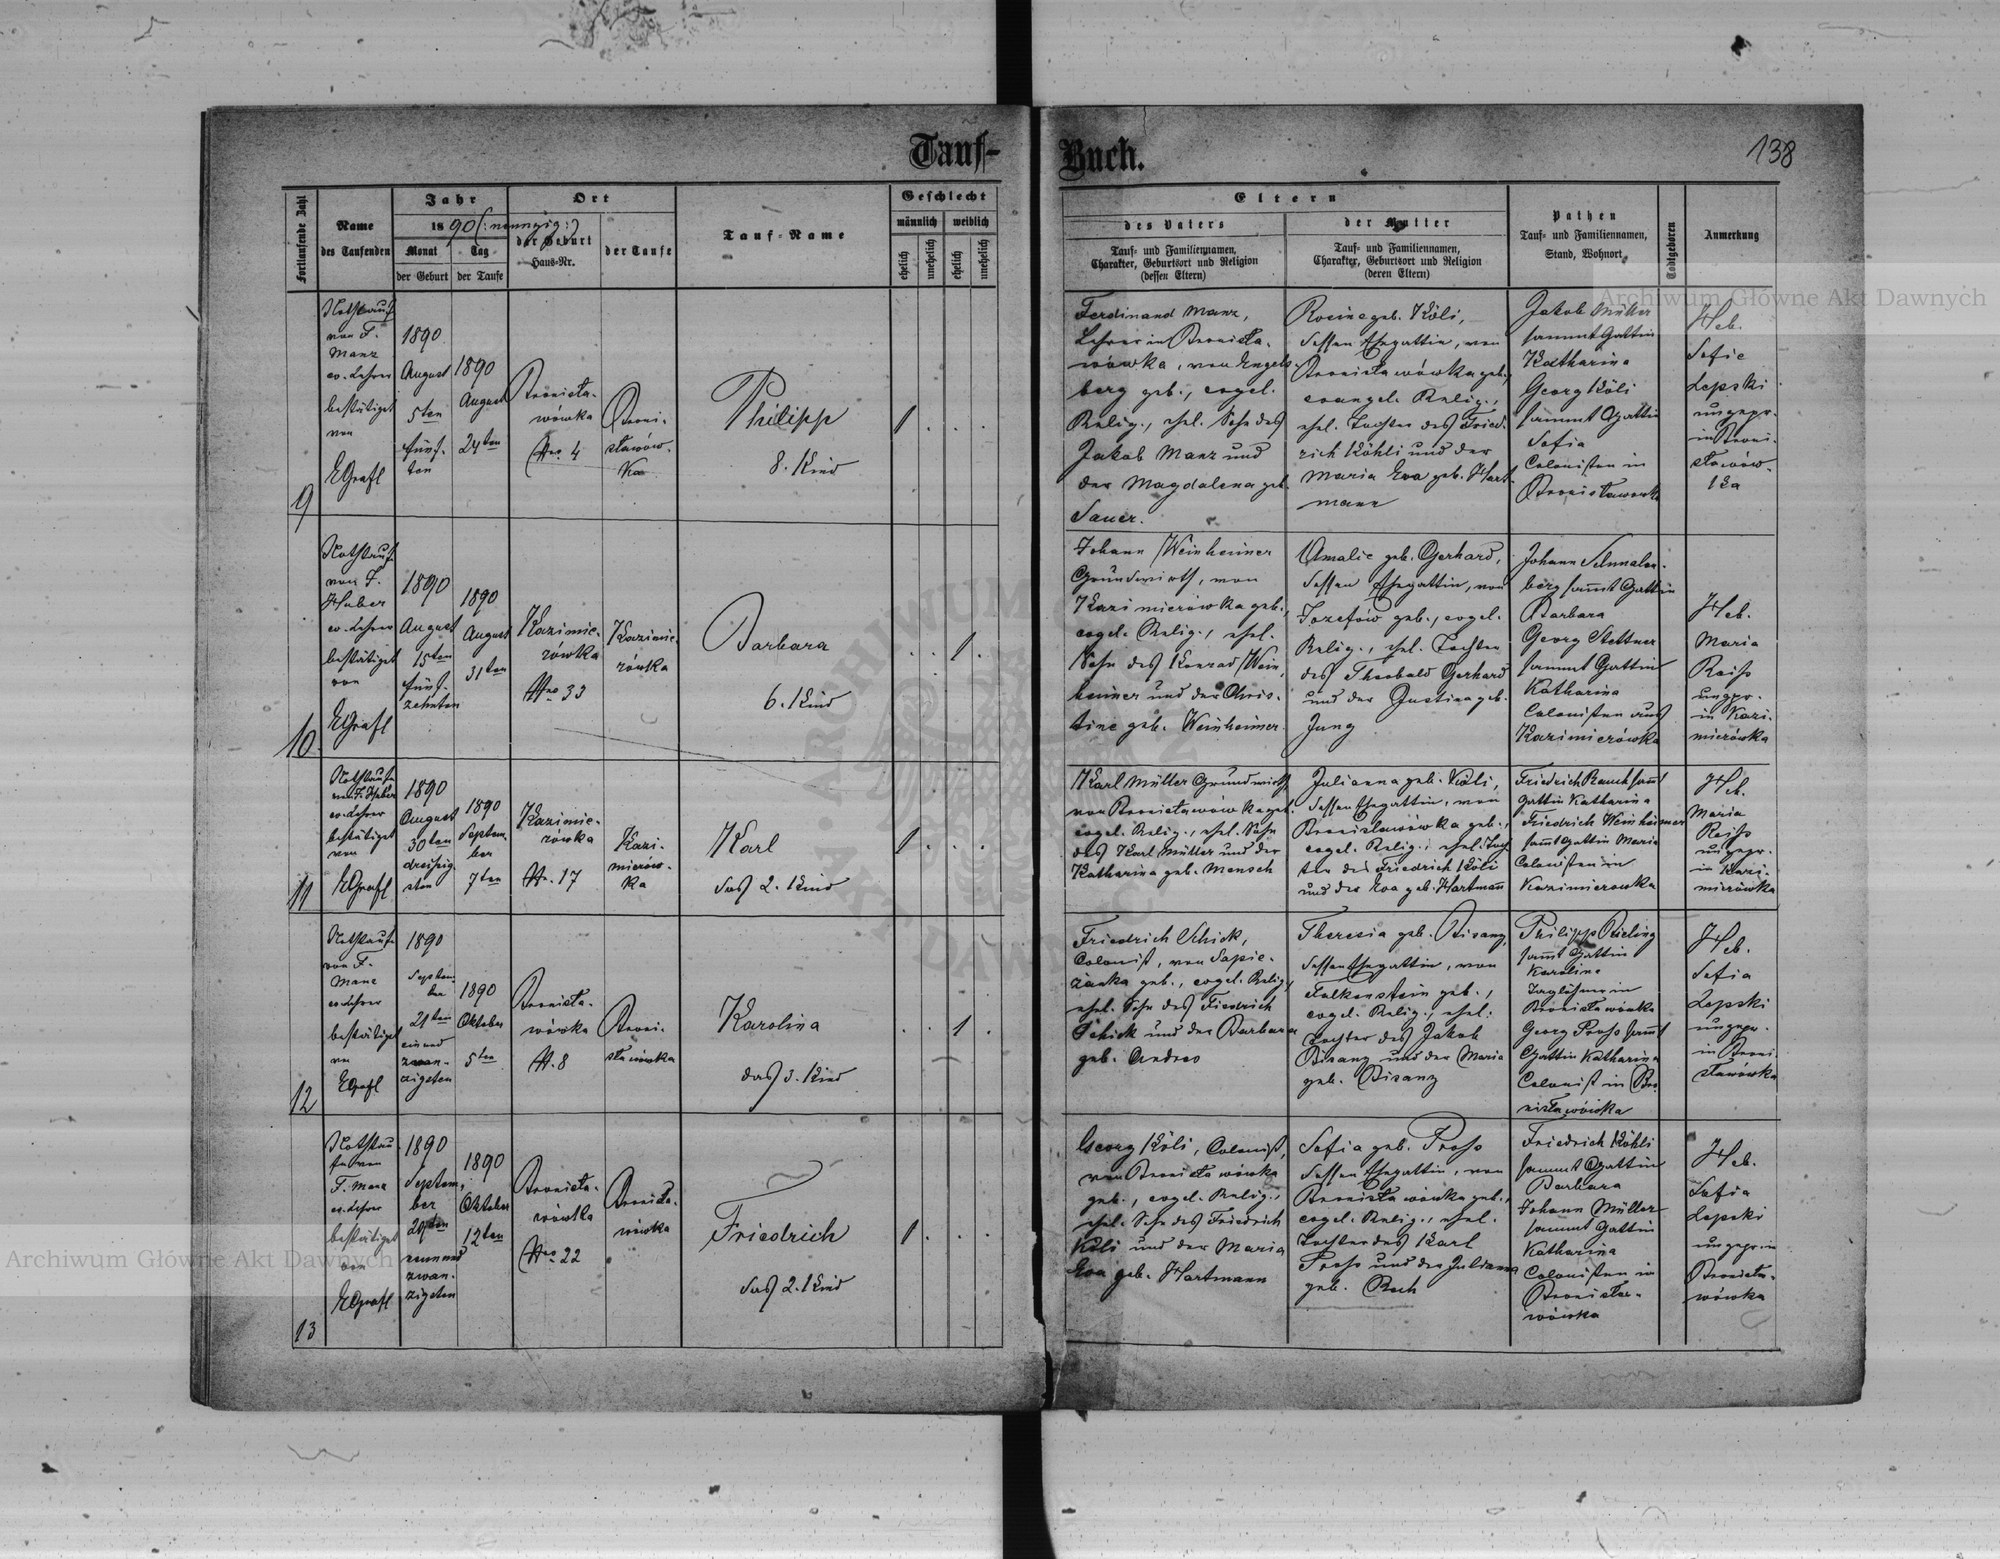 Tauf-
Buch.
138
Fortlaufende Zahl
Name
des Taufenden
Jahr
1890 (: neunzig :)
Monat
Tag
der Geburt
der Taufe
Ort
der Geburt
Haus-Nr.
der Taufe
Tauf-Name
Geschlecht
männlich
weiblich
ehelich
unehelich
ehelich
unehelich
Eltern
des Vaters
Tauf- und Familiennamen,
Charakter, Geburtsort und Religion
(dessen Eltern)
der Mutter
Tauf- und Familiennamen,
Charakter, Geburtsort und Religion
(deren Eltern)
Pathen
Tauf- und Familiennamen,
Stand, Wohnort
Todtgeboren
Anmerkung
9
Nothtauf
von F.
Manz
ev. Lehrer
bestätiget
von
EGrafl
1890
August
5ten
fünf-
ten
1890
August
24ten
Bronisła-
wówka
Nro. 4
Broni-
sławów-
ka
Philipp
8. Kind
1
Ferdinand Manz,
Lehrer in Bronisła-
wówka, von Engels-
berg geb., evgel.
Relig., ehel. Sohn des
Jakob Manz und
der Magdalena geb.
Sauer.
Rosine geb. Köli,
dessen Ehegattin, von
Bronisławówka geb.,
evangel. Relig.,
ehel. Tochter des Fried-
rich Köhli und der
Maria Eva geb. Hart-
mann
Jakob Müller
sammt Gattin
Katharina
Georg Köli
sammt Gattin
Sofia
Colonisten in
Bronisławowka
Heb.
Sofie
Lepski
ungepr.
in Broni-
sławów-
ka
10
Nothtauf
von F.
Huber
ev. Lehrer
bestätiget
von
EGrafl
1890
August
15ten
fünf-
zehnten
1890
August
31ten
Kazimie-
rówka
Nro 33
Kazimie-
rówka
Barbara
6. Kind
1
Johann Weinheimer
Grundwirth, von
Kazimierówka geb.,
evgel. Relig., ehel.
Sohn des Konrad Wein-
heimer und der Chris-
tine geb. Weinheimer
Amalie geb. Gerhard,
dessen Ehegattin, von
Jozefów geb., evgel.
Relig., ehel. Tochter
des Theobald Gerhard
und der Justina geb.
Jung
Johann Schmalen-
berg sammt Gattin
Barbara
Georg Stettner
sammt Gattin
Katharina
Colonisten aus
Kazimierówka
Heb.
Maria
Reiss
ungepr.
in Kazi-
mierówka
11
Nothtauf
von F. Huber
ev. Lehrer
bestätiget
von
EGrafl
1890
August
30ten
dreissig-
sten
1890
Septem-
ber
7ten
Kazimie-
rówka
Nr. 17
Kazi-
mierów-
ka
Karl
das 2. Kind
1
Karl Müller Grundwirth
von Bronisławówka geb.
evgel. Relig., ehel. Sohn
des Karl Müller und der
Katharina geb. Mensch
Julianna geb. Köli,
dessen Ehegattin, von
Bronisławówka geb.,
evgel. Relig., ehel. Toch-
ter des Friedrich Köli
und der Eva geb. Hartmann
Friedrich Rauch samt
Gattin Katharina
Friedrich Weinheimer
samt Gattin Maria
Colonisten in
Kazimierowka
Heb.
Maria
Reiss
ungepr.
in Kazi-
mierówka
12
Nothtauf
von F.
Manz
ev. Lehrer
bestätiget
von
EGrafl
1890
Septem-
ber
21ten
einund
zwan-
zigsten
1890
Oktober
5ten
Bronisła-
wówka
Nr. 8
Broni-
sławówka
Karolina
das 3. Kind
1
Friedrich Schick,
Colonist, von Sapie-
żanka geb., evgel. Relig.
ehel. Sohn des Fiedrich
Schick und der Barbara
geb. Andres
Theresia geb. Bisanz,
dessen Ehegattin, von
Falkenstein geb.,
evgel. Relig., ehel.
Tochter des Jakob
Bisanz und der Maria
geb. Bisanz
Philipp Bieling
samt Gattin
Karoline
Taglöhner in
Bronisławówka
Georg Pross samt
Gattin Katharina
Colonist in Bro-
nisławówka
Heb.
Sofia
Lepski
ungepr.
in Broni-
sławówka
13
Nothtau-
fe von
F. Manz
ev. Lehrer
bestätiget
von
EGrafl
1890
Septem-
ber
29ten
neunund
zwan-
zigsten
1890
Oktober
12ten
Bronisła-
wówka
Nro 22
Bronisła-
wówka
Friedrich
das 2. Kind
1
Georg Köli, Colonist,
von Bronisławówka
geb., evgel. Relig.,
ehel. Sohn des Friedrich
Köli und der Maria
Eva geb. Hartmann
Sofia geb. Pross
dessen Ehegattin, von
Bronisławówka geb.,
evgel. Relig., ehel.
Tochter des Karl
Pross und der Julianna
geb. Rech
Friedrich Köhli
sammt Gattin
Barbara
Johann Müller
sammt Gattin
Katharina
Colonisten in
Bronisła-
wówka
Heb.
Sofia
Lepski
ungepr in
Bronisła-
wówka
Archiwum Główne Akt Dawnych
Archiwum Główne Akt Dawnych